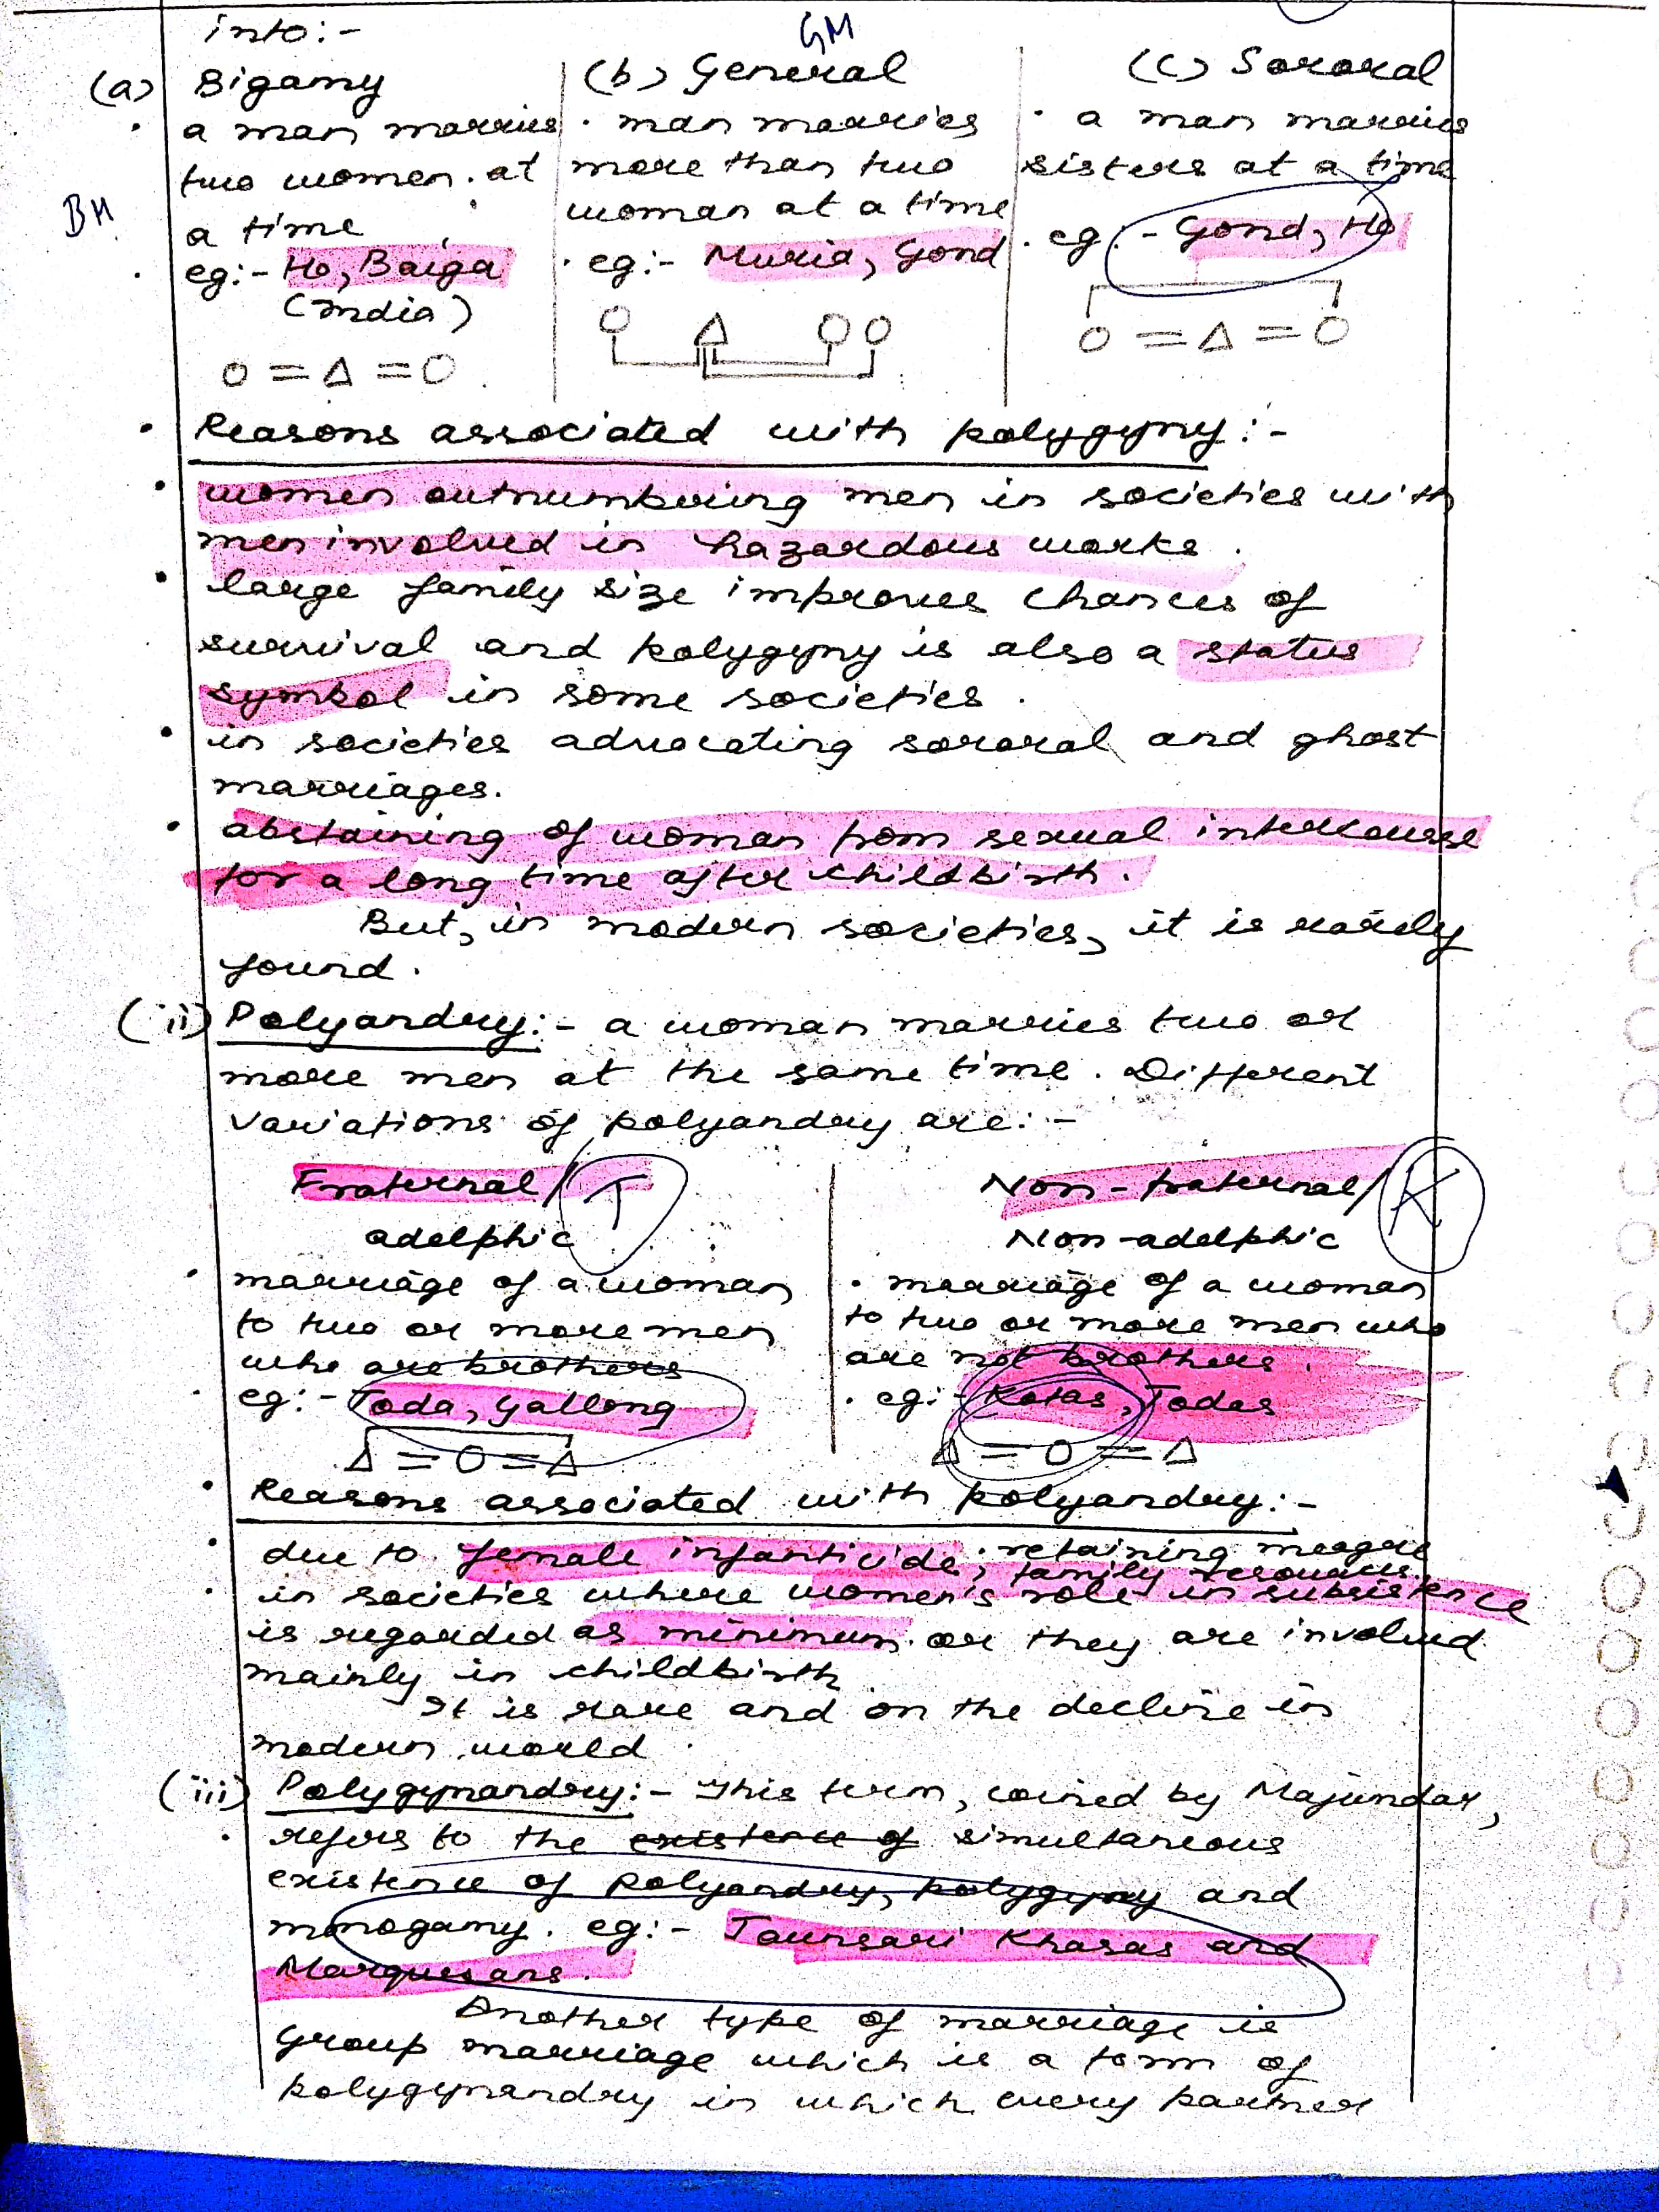 into:-
GM
(a) Bigamy
· a man marries
two women at
a time
BH
· eg:- Ho, Baiga
(India)
O = Δ = O
(b) General
· man marries
more than two
woman at a time
· eg:- Muria, Gond
(c) Sororal
· a man marries
sisters at a time
· eg:- Gond, Ho
O = Δ = O
· Reasons associated with polygyny:-
· women outnumbering men in societies with
men involved in hazardous works.
· large family size improves chances of
survival and polygyny is also a status
symbol in some societies.
· in societies advocating sororal and ghost
marriages.
· abstaining of woman from sexual intercourse
for a long time after childbirth.
But, in modern societies, it is rarely
found.
(ii) Polyandry:- a woman marries two or
more men at the same time. Different
variations of polyandry are:-
Fraternal/ T
adelphic
· marriage of a woman
to two or more men
who are brothers
· eg:- Toda, Gallong
Δ = O = Δ
Non-fraternal/ K
Non-adelphic
· marriage of a woman
to two or more men who
are not brothers.
· eg:- Kotas, Todas
Δ = O = Δ
· Reasons associated with polyandry:-
· due to female infanticide; retaining meagre
family resources.
· in societies where women's role in subsistence
is regarded as minimum or they are involved
mainly in childbirth
It is rare and on the decline in
modern world.
(iii) Polygynandry:- This term, coined by Majumdar,
· refers to the existence of simultaneous
existence of polyandry, polygyny and
monogamy. eg:- Jaunsari Khasas and
Marquesans.
Another type of marriage is
group marriage which is a form of
polygynandry in which every partner